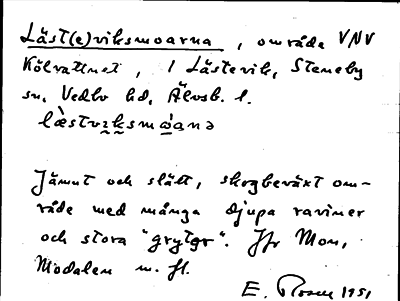 Läst(e)viksmoarna, område VNV
Kölvattnet, i Lästevik, Steneby
sn, Vedbo hd, Älvsb. l.
lӕ̀stvıksmɷana
Jämnt och slätt, skogbeväxt om-
råde med många djupa raviner
och stora "grytor". Jfr Mon,
Modalen m. fl.
E. Rosen 1951